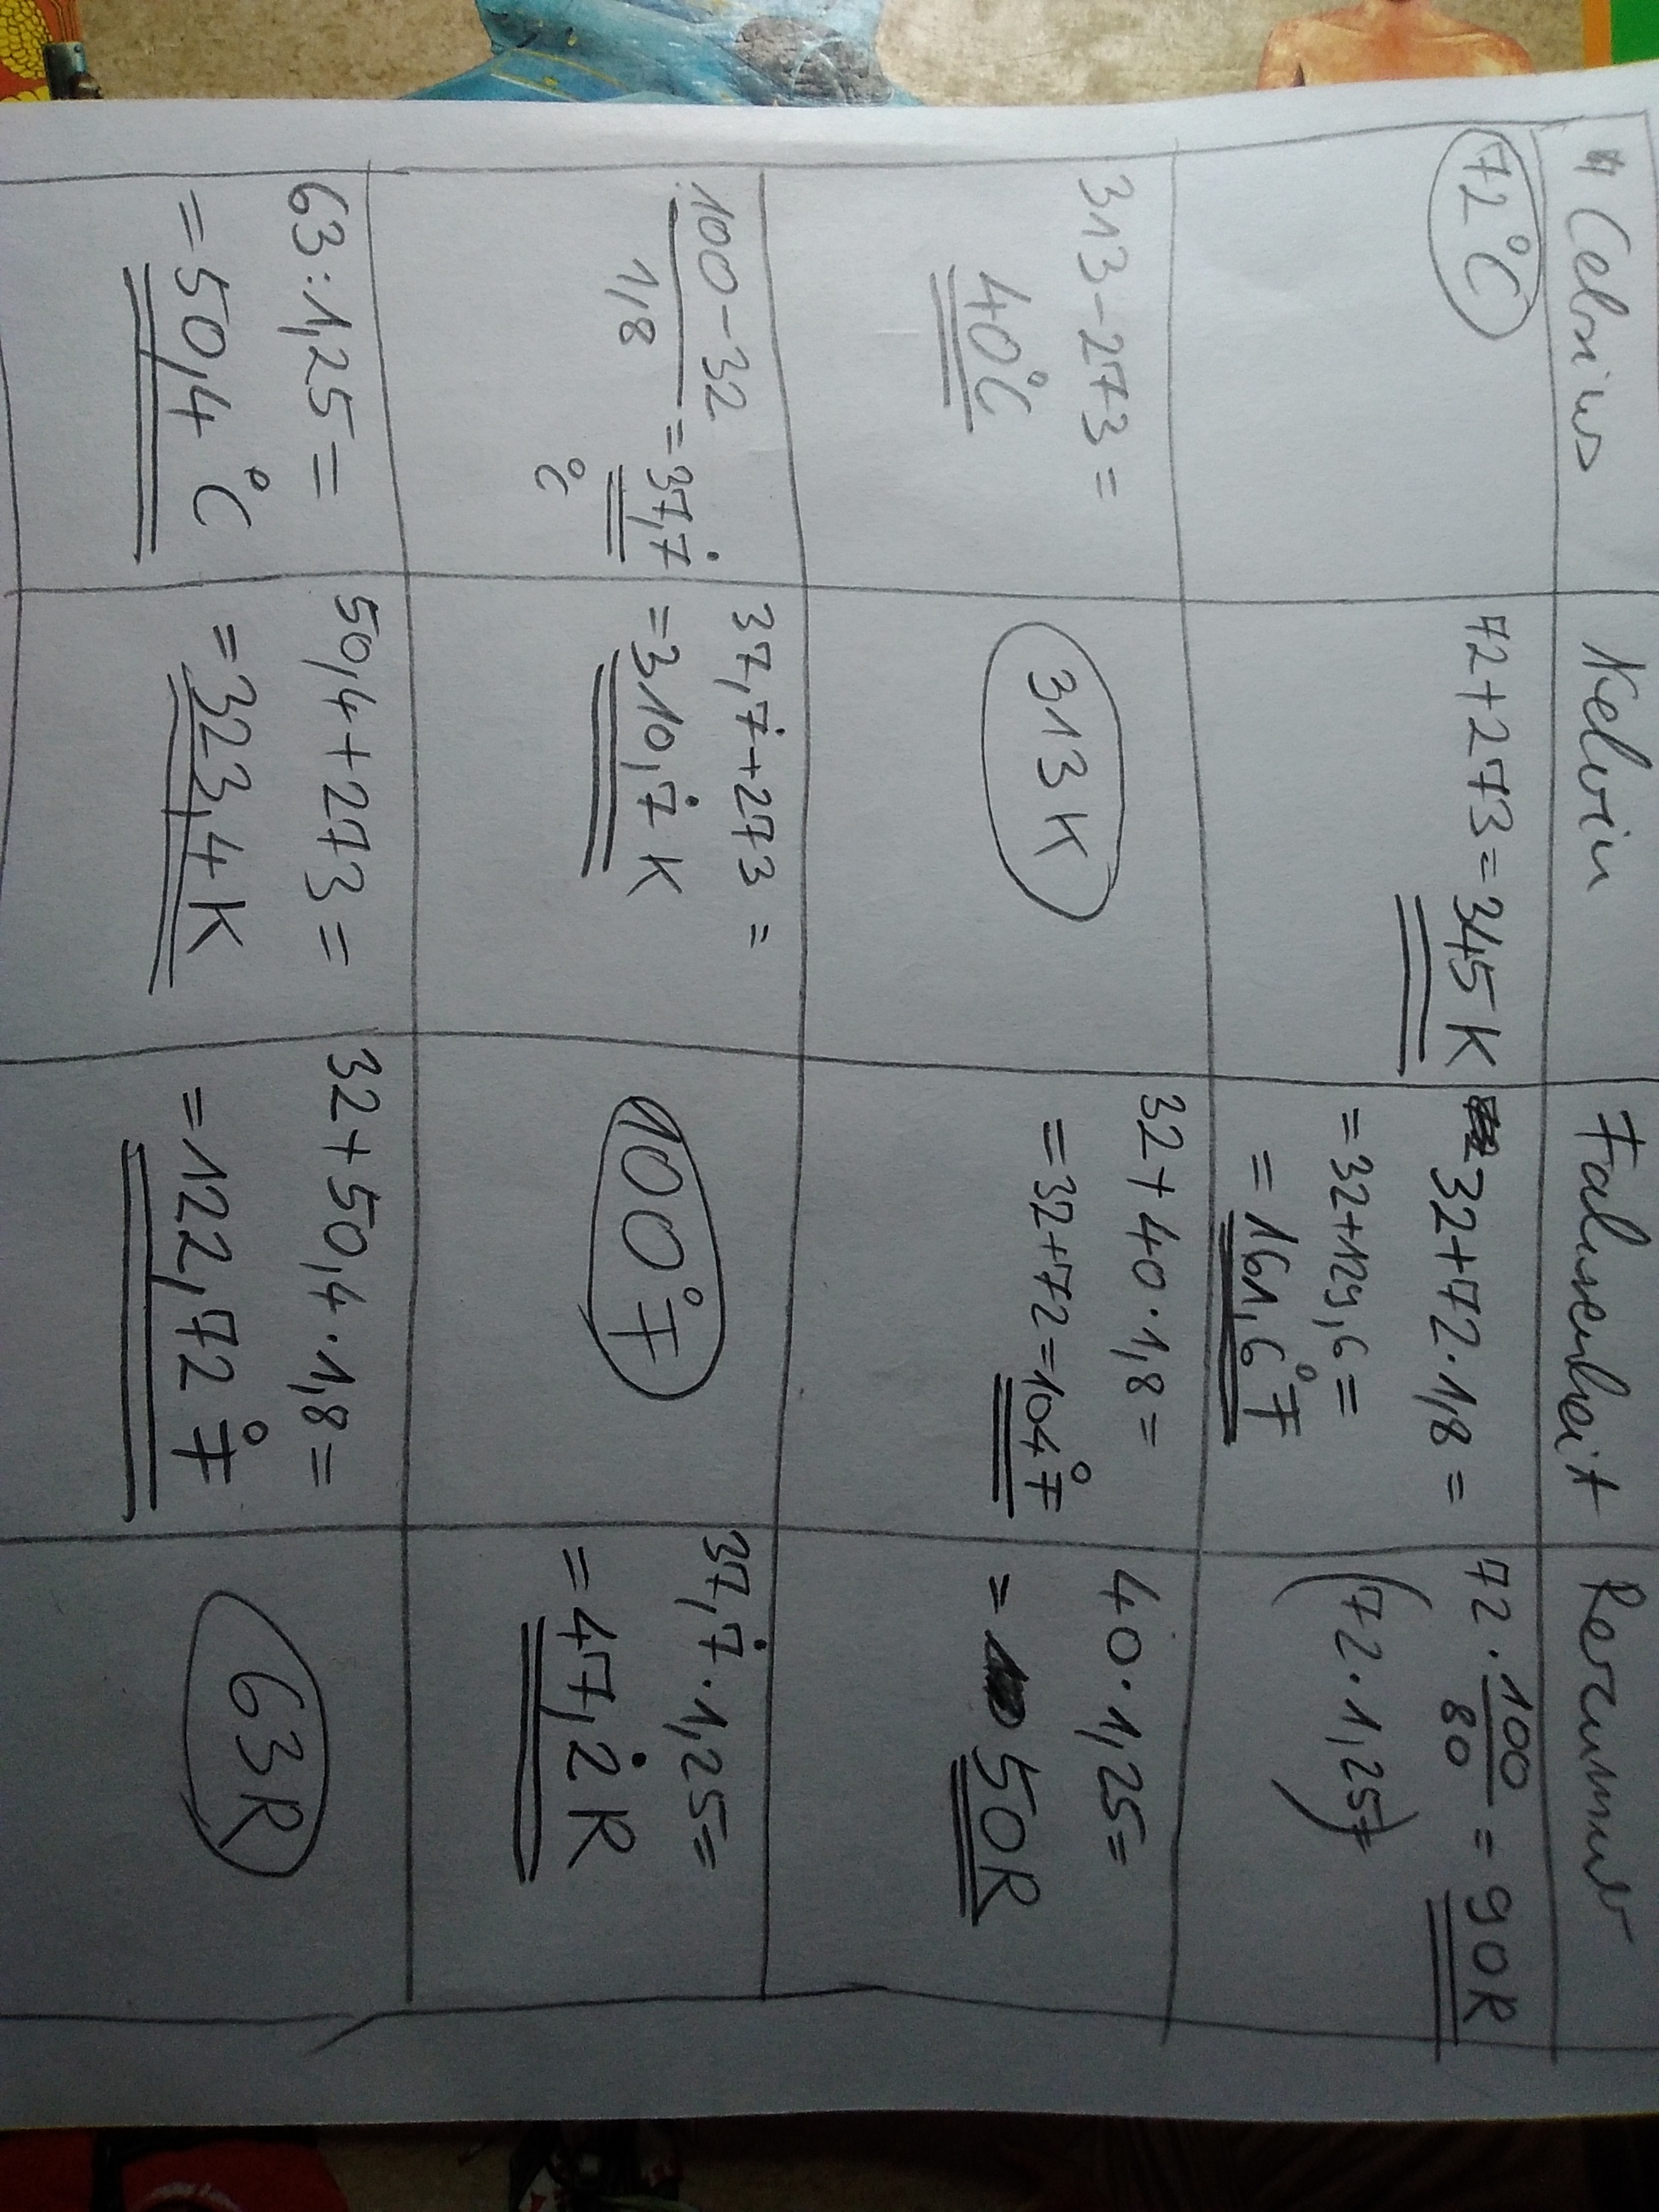 Celsius Kelvin Fahrenheit Reaumur
72°C 72+273=345K 32+72·1,8= 72·100/80=90R
=32+129,6= (72·1,25)
=161,6°F
313-273= 313K 32+40·1,8= 40·1,25=
40°C =32+72=104°F =50R
100-32/1,8=37,7̇ 37,7̇+273= 100°F 37,7̇·1,25=
°C =310,7̇K =47,2̇R
63:1,25= 50,4+273= 32+50,4·1,8= 63R
=50,4°C =323,4K =122,72°F